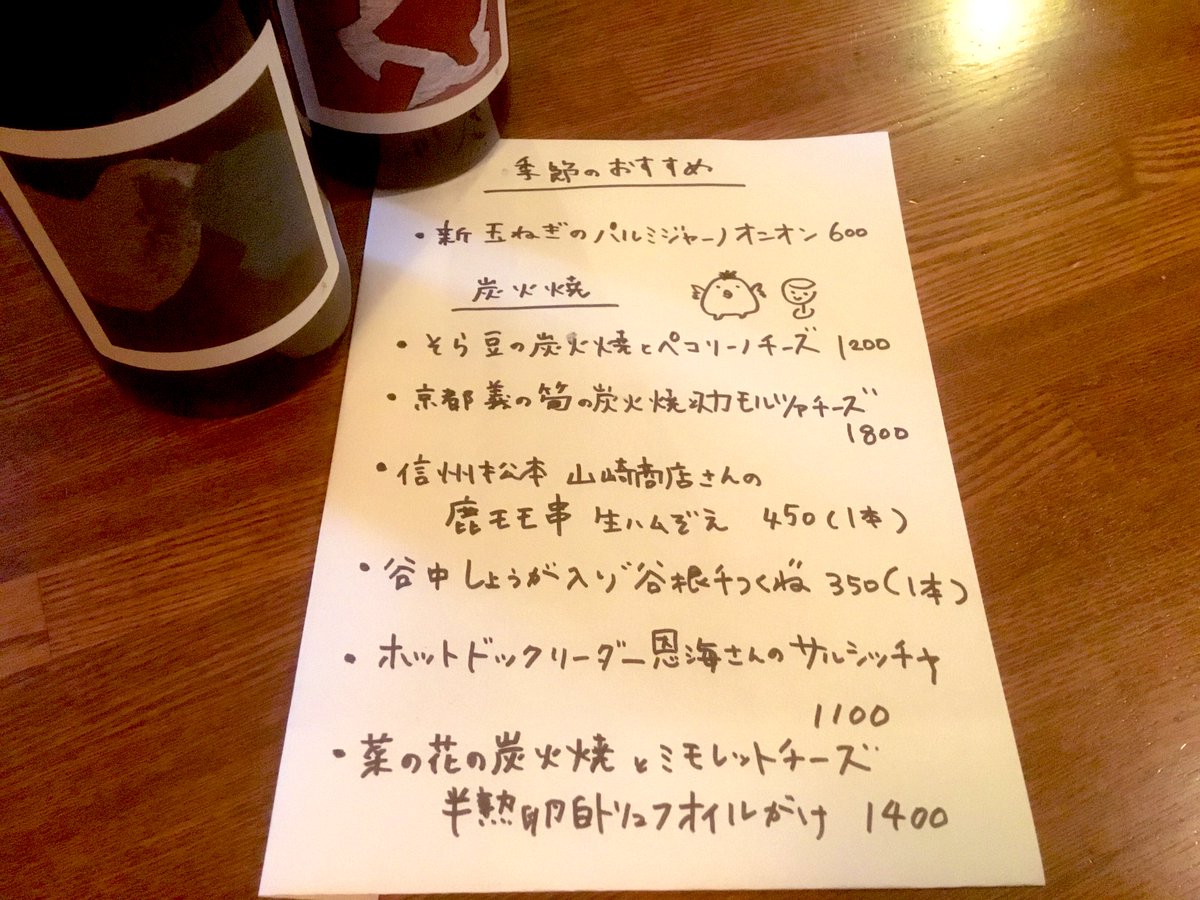 季節のおすすめ
・新玉ねぎのパルミジャーノオニオン 600
炭火焼
・そら豆の炭火焼とペコリーノチーズ 1200
・京都 の筍の炭火焼 モルツァチーズ
1800
・信州松本 山崎商店さんの
鹿モモ串 生ハムぞえ 450(1本)
・谷中しょうが入り谷根千つくね 350(1本)
・ホットドックリーダー恩海さんのサルシッチャ
1100
・菜の花の炭火焼とミモレットチーズ
半熟卵白トリュフオイルがけ 1400